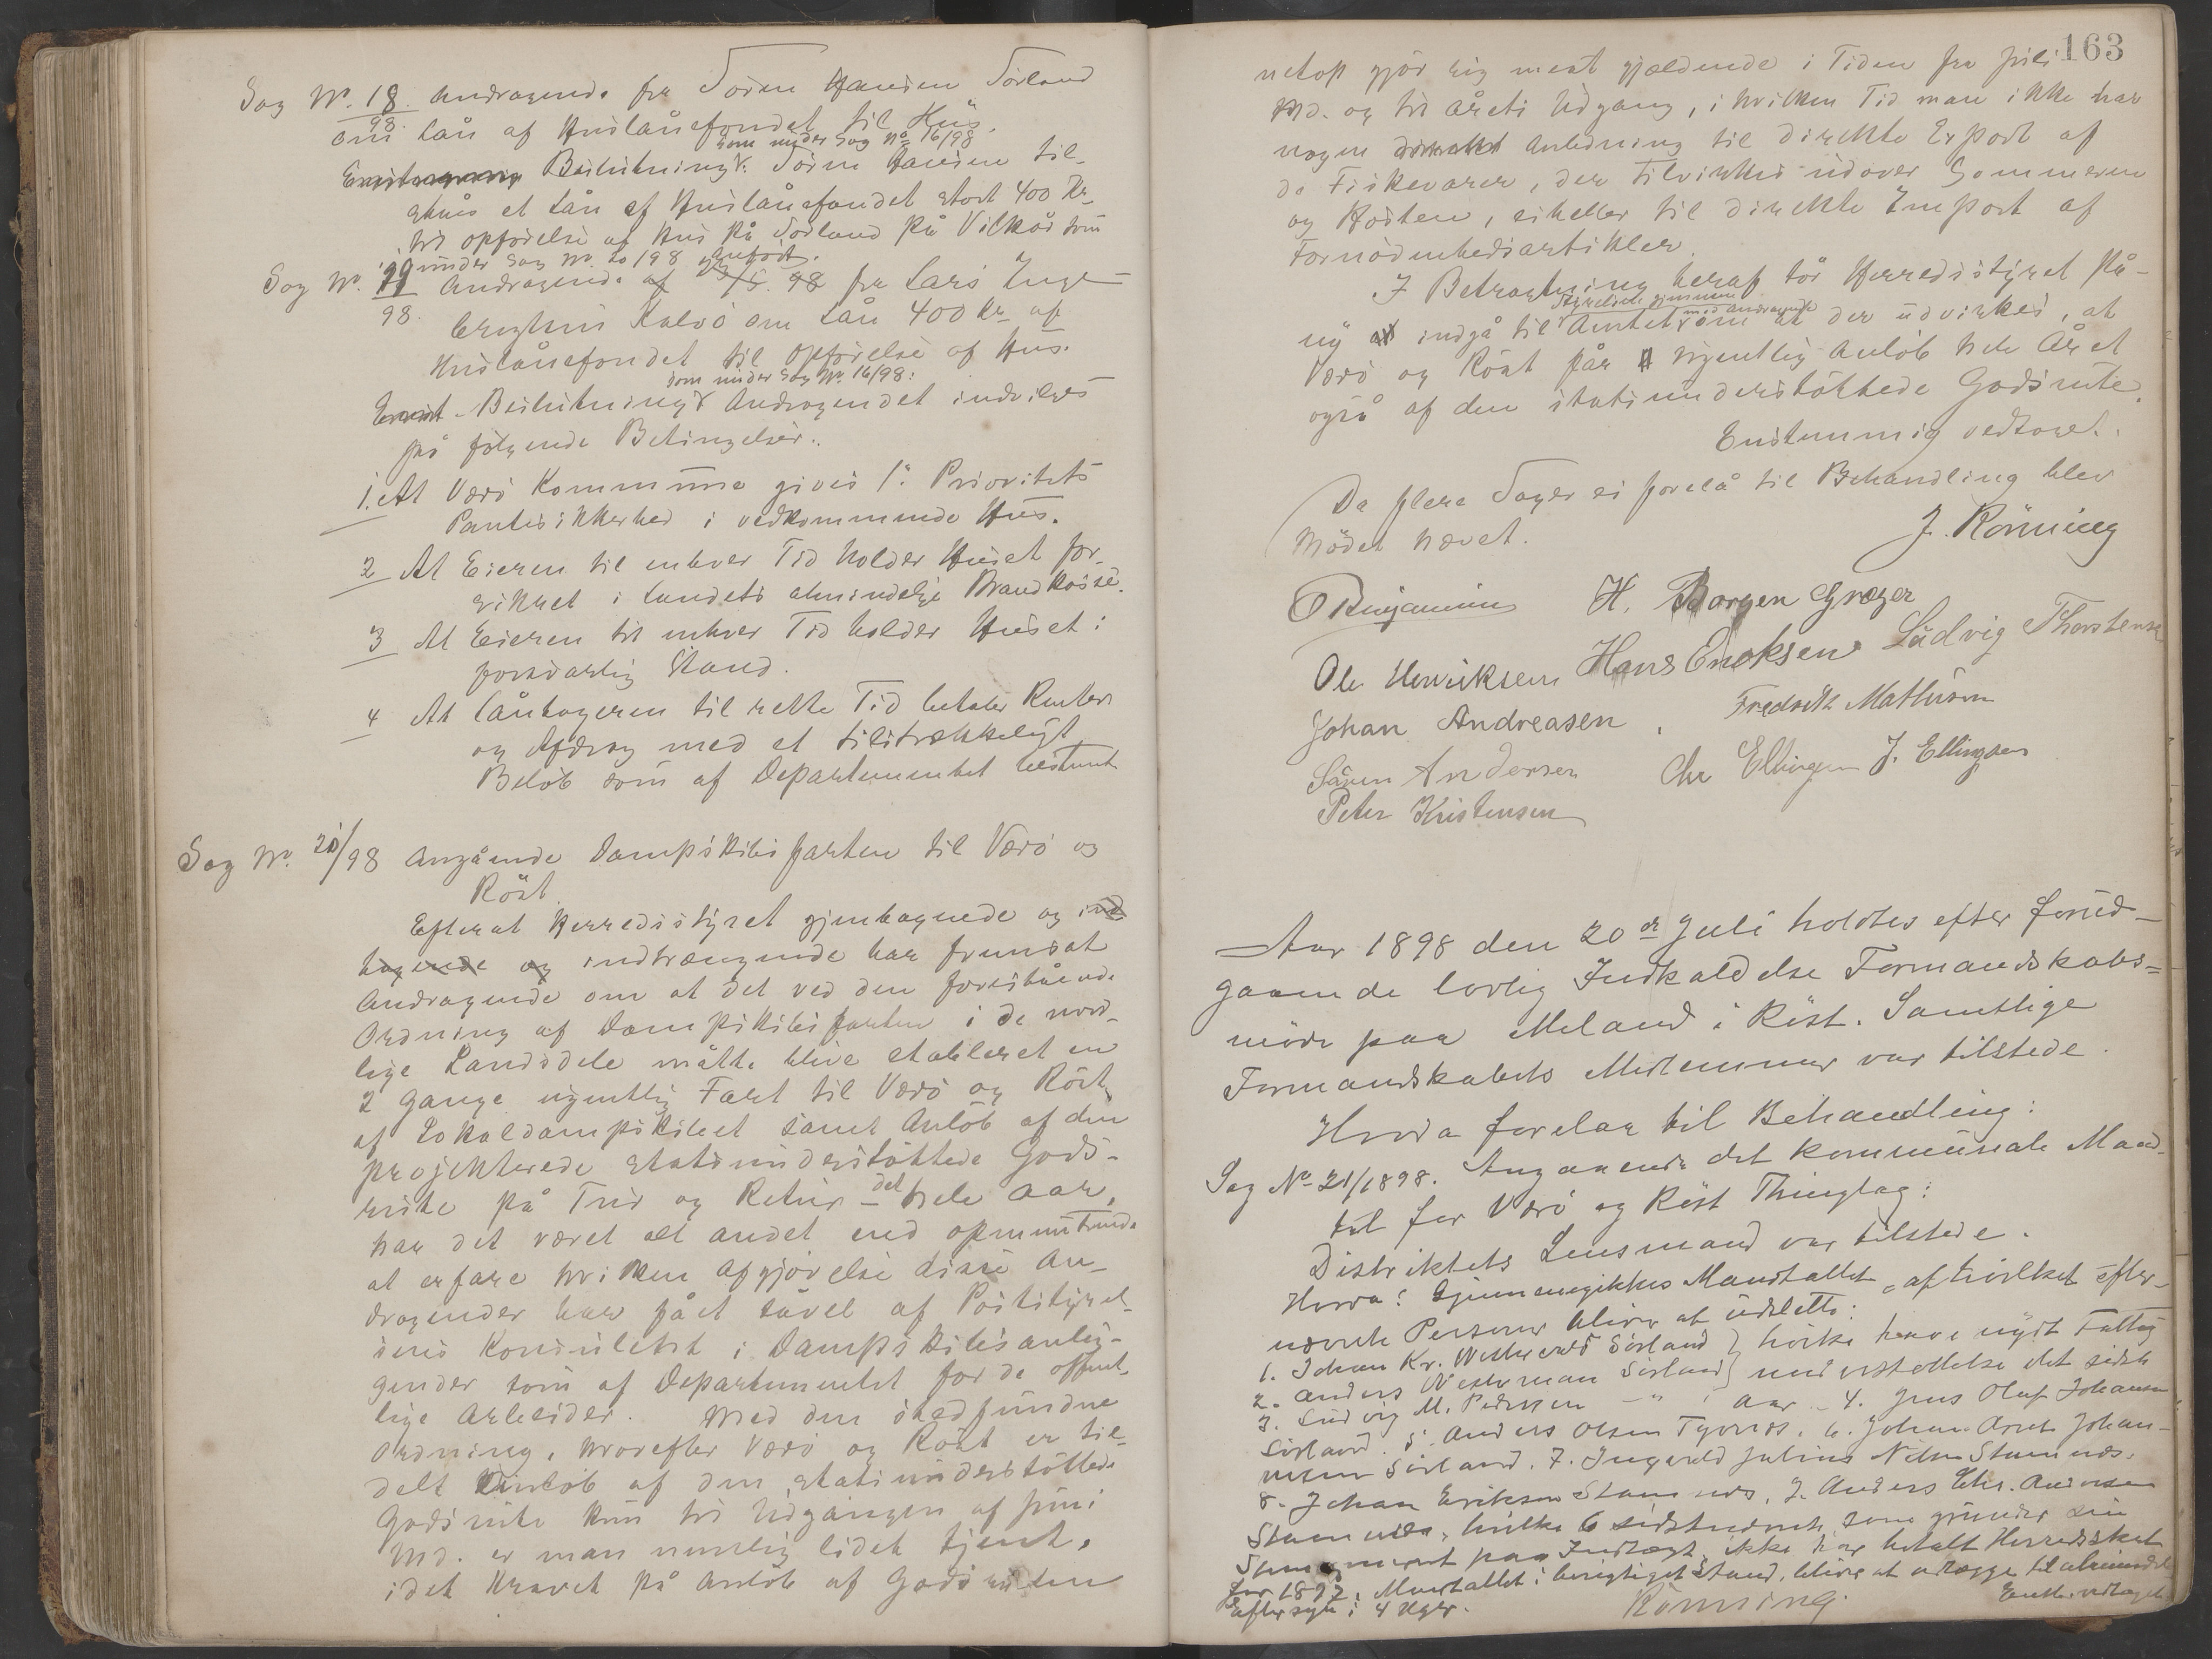 Sag No. 18/98. Andragende fra Sörен Hansen Sörland
om Lån af Huslånefondet til Hus.
som under Sag No 16/98
Enstemmig Beslutning: Sören Hansen til-
ståes et Lån af Huslånefondet stort 400 Kr.
til opförelse af Hus på Sörland på Vilkår som
under Sag No. 20/98 anført.
Sag No. 19/98. Andragende af /5. 98 fra Lars Inge-
brigtsen Kalvö om Lån 400 Kr. af
Huslånefondet til Opförelse af Hus.
som under Sag No. 16/98:
Enst. Beslutning: Andragendet indvilges
på følgende Betingelser:
1. At Værö Kommune gives 1ste Prioritets
Pantesikkerhed i vedkommende Hus.
2 At Eieren til enhver Tid holder Huset for-
sikret i Landets almindelige Brandkasse.
3 At Eieren til enhver Tid holder Huset i
forsvarlig Stand.
4 At Låntageren til rette Tid betaler Renter
og Afdrag med et tilstrækkeligt
Belöb som af Departementet bestemt
Sag No. 20/98 Angående Dampskibsfarten til Værö og
Röst.
Efterat Herredsstyret gjentagende og ind
tagende og indtrængende har fremsat
Andragende om at det ved den forestående
Ordning af Dampskibsfarten i de nord-
lige Landsdele måtte blive etableret en
2 Gange ugentlig Fart til Værö og Röst
af Lokaldampskibet samt Anlöb af den
projekterede statsunderstöttede Gods-
rute på Tur og Retur det hele Aar,
har det været alt andet end opmuntrende
at erfare hvilken Afgjörelse disse An-
dragender har fået såvel af Poststyrel-
sens Konsulent i Dampskibsanlig-
gender som af Departementet for de offent-
lige Arbeider. Med den stedfundne
Ordning, hvorefter Værö og Röst er til-
delt Anlöb af den statsunderstöttede
Godsrute kun til Udgangen af Juni
Md. er man nemlig lidet tjent,
idet Kravet på Anlöb af Godsruten
163
netop gjör sig mest gjældende i Tiden fra Juli
Md. og til Årets Udgang, i hvilken Tid man ikke har
nogen direkte Anledning til direkte Export af
de Fiskevarer, der tilvirkes udover Sommeren
og Hösten, eiheller til direkte Import af
Fornödenhedsartikler.
I Betragtning heraf tör Herredsstyret på-
ny at indgå til Amtet med Andragende om at der udvirkes, at
Værö og Röst får ugentlig Anlöb hele Året
også af den statsunderstöttede Godsrute.
Enstemmig vedtaget.
Da flere Sager ei forelå til Behandling blev
Mödet hævet.
J. Rönning
O Benjamins H. Borgen Grøger
Ole Henriksen Hans Enoksen Ludvig Thorstensen
Johan Andreasen. Fredrik Mathisen
Sören Andersen Chr Ellingsen J. Ellingsen
Peter Kristensen
Aar 1898 den 20de Juli holdtes efter forud-
gaaende lovlig Indkaldelse Formandskabs-
möde paa Meland i Röst. Samtlige
Formandskabets Medlemmer var tilstede.
Hvorda forelaa til Behandling:
Sag No 21/1898. Angaaende det kommunale Mand-
tal for Værö og Röst Thinglag:
Distriktets Lensmand var tilstede.
Hvorda: Gjennemgikkes Mandtallet, af hvilket efter-
nævnte Personer bliver at udslette:
1. Johan Kr. Sörland } hvilke have nydt Fattig
2. Anders Sörland } understöttelse det sidste
3. Ludvig M. Pedersen - " - Aar. - 4. Jens Oluf Johansen
Sörland. 5. Anders Olsen Tyvnes. 6. Johan Arnt Johan-
nesen Sörland. 7. Ingvald Julius Nilsen Stamnes.
8. Johan Eriksen Stamnes, 9. Anders Chr. Andersen
Stamnes, hvilke 6 sidstnævnte, som grunder sin
Stemmeret paa Indtægt, ikke har betalt Herredsskat
for 1897. Mandtallet i berigtiget Stand, bliver at udlægge til almindeligt
Eftersyn i 4 Uger. Rönning. Enst. vedtaget.